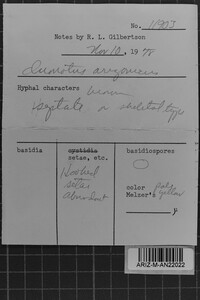 No. 11903
Notes by R. L. Gilbertson
Nov 10, 1978
Inonotus arizonicus
Hyphal characters brown
septate or skeletal type
basidia
cystidia
setae, etc.
basidiospores
Hooked
setae
abundant
color pale
Melzer's yellow
μ
ARIZ-M-AN22022